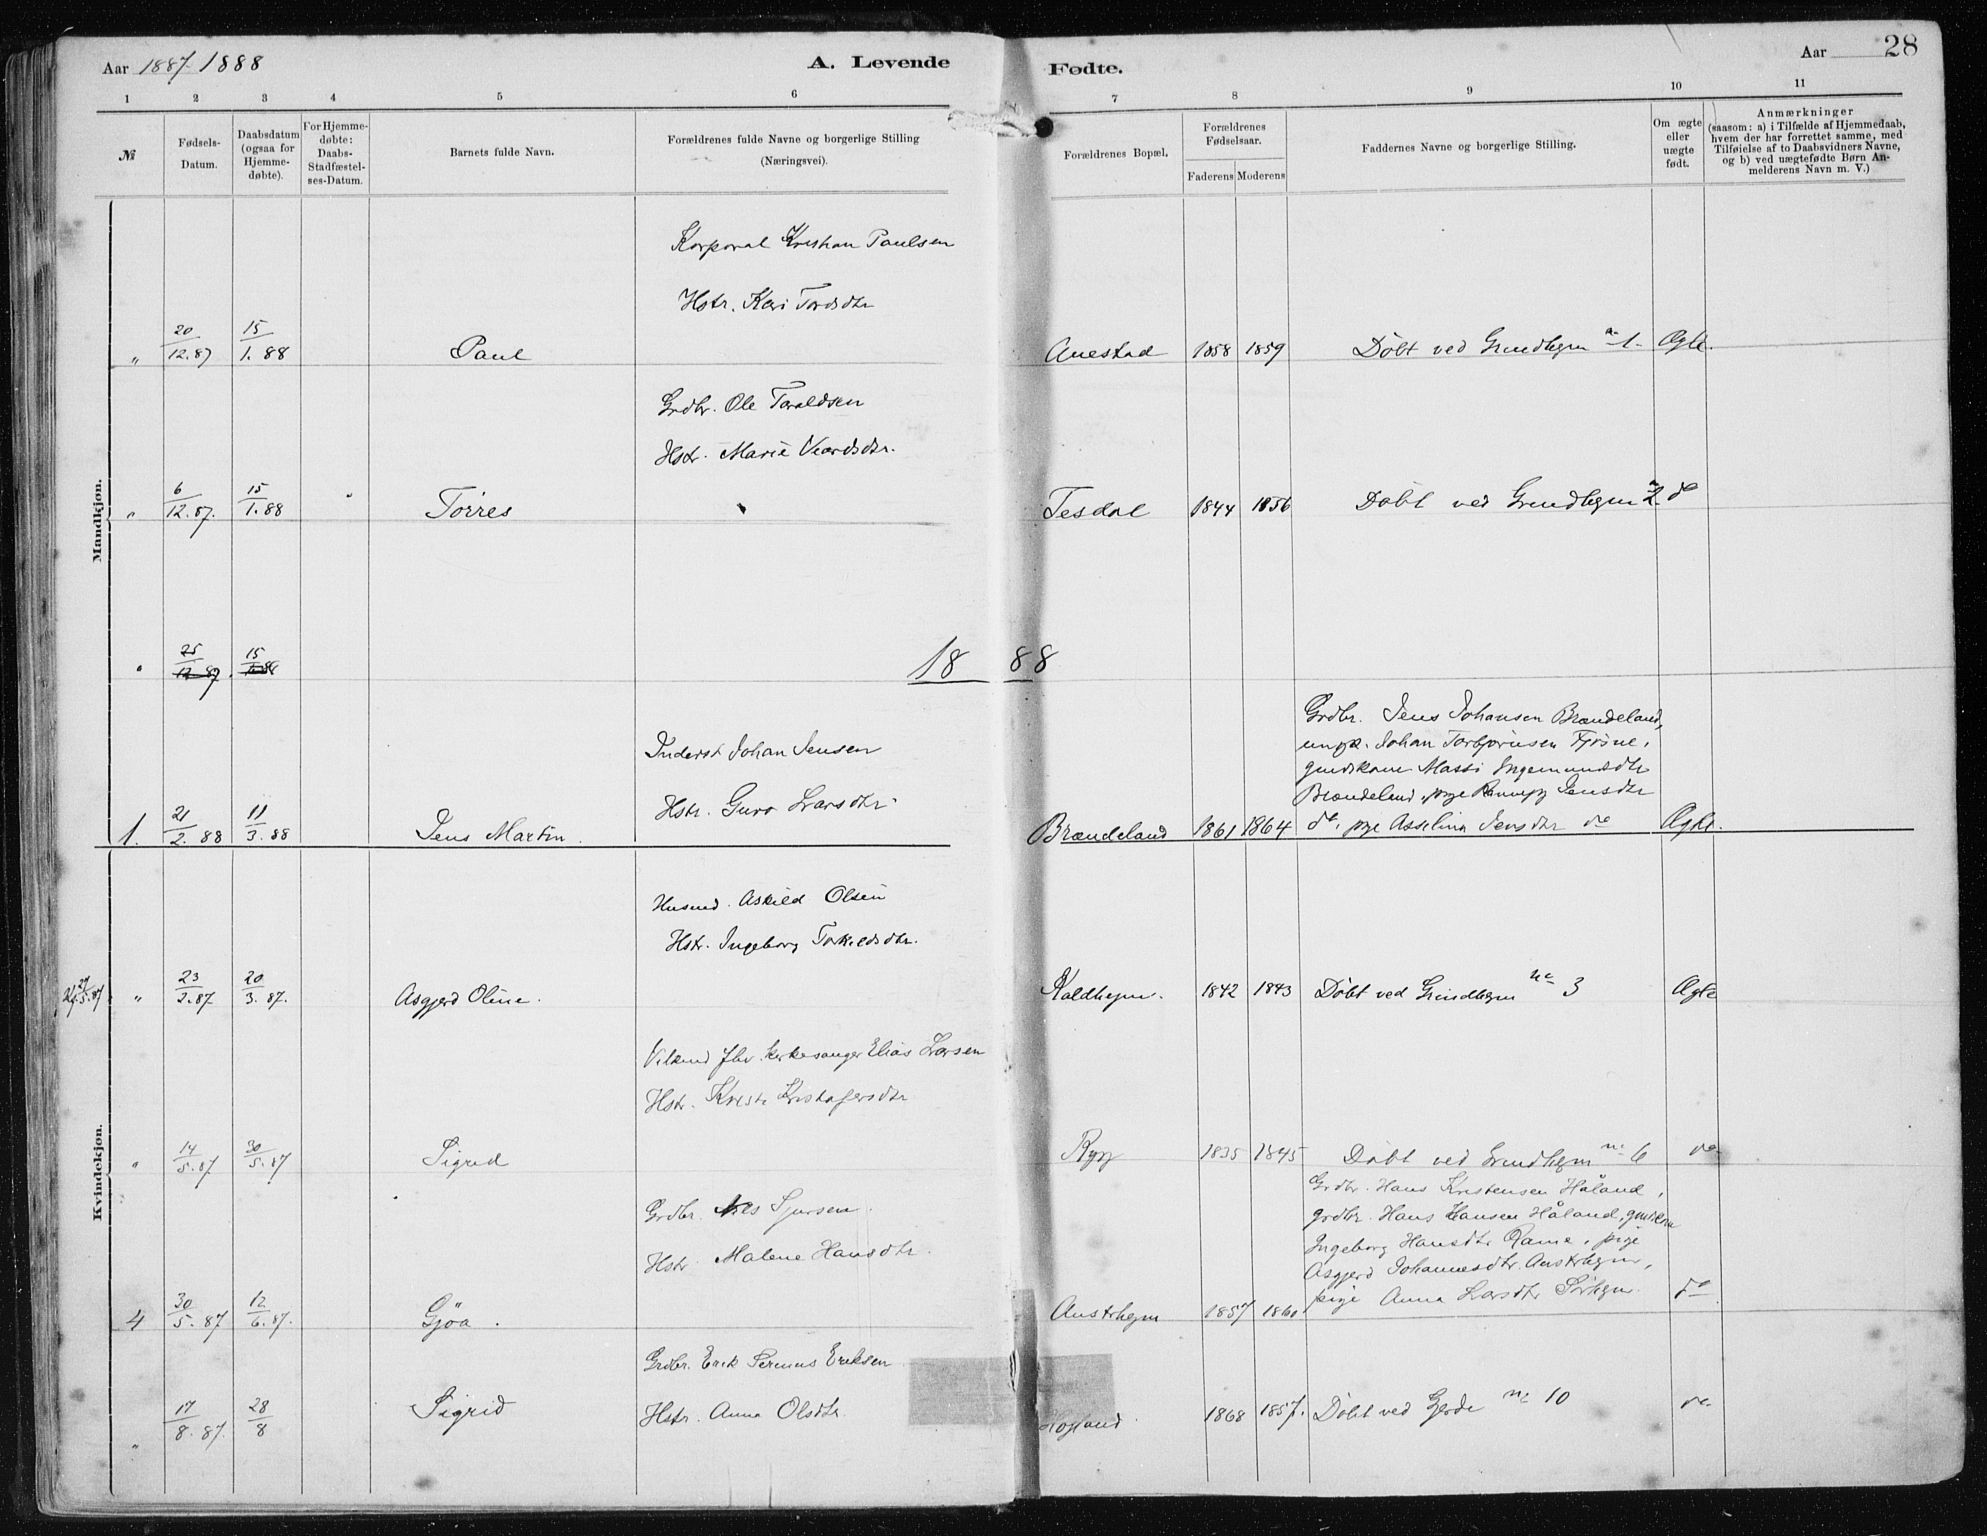 Aar 1887-1888
A. Levende
Fødte.
Aar 28
1 2 3 4 5 6 7 8 9 10 11
№
Fødsels-
Datum.
Daabsdatum
(ogsaa for
Hjemme-
døbte).
For Hjemme-
døbte:
Daabs-
Stadfæstel-
ses-Datum.
Barnets fulde Navn.
Forældrenes fulde Navne og borgerlige Stilling
(Næringsvei).
Forældrenes Bopæl.
Forældrenes
Fødselsaar.
Faderens Moderens
Faddernes Navne og borgerlige Stilling.
Om ægte
eller
uægte
født.
Anmærkninger
(saasom: a) i Tilfælde af Hjemmedaab,
hvem der har forrettet samme, med
Tilføielse af to Daabsvidners Navne,
og b) ved uægtefødte Børn An-
melderens Navn m. V.)
Mandkjøn.
Korporal Kristian Paulsen
Hstr. Kari Tordsdtr
" 20/12.87 15/1.88 Paul
Auestad 1858 1859 Döbt ved Grindhejm no 1. Ægte.
Grdbr. Ole Taraldsen
Hstr. Marie Veardsdtr.
" 6/12.87. 15/1.88 Törres
Tesdal 1844 1856 Döbt ved Grindhejm no 2 do
" 25/12.87. 15/1.88
1888
Grdbr. Jens Johansen Brændeland,
ungk. Johan Torbjörnsen Tjösne,
Inderst Johan Jensen
gmdskone Massi Ingemundsdtr
Hstr. Guro Larsdtr.
Brændeland, pige Rannveig Jensdtr
1. 21/2.88 11/3.88 Jens Martin.
Brændeland 1861 1864 do, pige Asselina Jensdtr do Ægte.
Kvindekjøn.
Husmd. Askild Olsen
Hstr. Ingeborg Torkildsdtr.
" 23/2.87 20/3.87. Asgjerd Oline.
Kaldhejm. 1842 1843 Döbt ved Grindhejm no 3 Ægte
Kirkesanger Elias Larsen
Hstr. Kristi Kristofersdtr
" 14/5.87 30/5.87 Sigrid
Ryg 1835 1845 Döbt ved Grindhejm no 6 do
Grdbr. Hans Kristensen Håland,
Grdbr. Nils Sjursen.
grdbr. Hans Hansen Håland, gmdkone
Hstr. Malene Hansdtr.
Ingeborg Hansdtr Rame, pige
Asgjerd Johannesdtr. Austrhejm,
pige Anna Larsdtr Sörhejm. do
4 30/5.87 12/6.87. Gjöa.
Austrhejm 1857 1860
Grdbr. Erik Serinus Eriksen
Hstr. Anna Olsdtr.
" 17/8.87. 28/8 Sigrid
1868 1857. Döbt ved Gjerde no 10 do